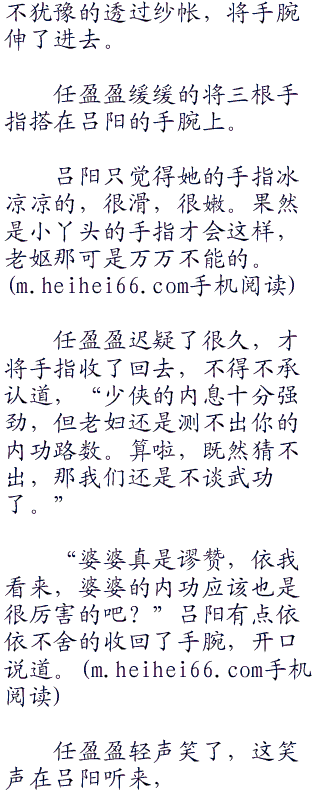 不犹豫的透过纱帐，将手腕
伸了进去。
任盈盈缓缓的将三根手
指搭在吕阳的手腕上。
吕阳只觉得她的手指冰
凉凉的，很滑，很嫩。果然
是小丫头的手指才会这样，
老妪那可是万万不能的。
(m.heihei66.com手机阅读)
任盈盈迟疑了很久，才
将手指收了回去，不得不承
认道，“少侠的内息十分强
劲，但老妇还是测不出你的
内功路数。算啦，既然猜不
出，那我们还是不谈武功
了。”
“婆婆真是谬赞，依我
看来，婆婆的内功应该也是
很厉害的吧？”吕阳有点依
依不舍的收回了手腕，开口
说道。(m.heihei66.com手机
阅读)
任盈盈轻声笑了，这笑
声在吕阳听来，